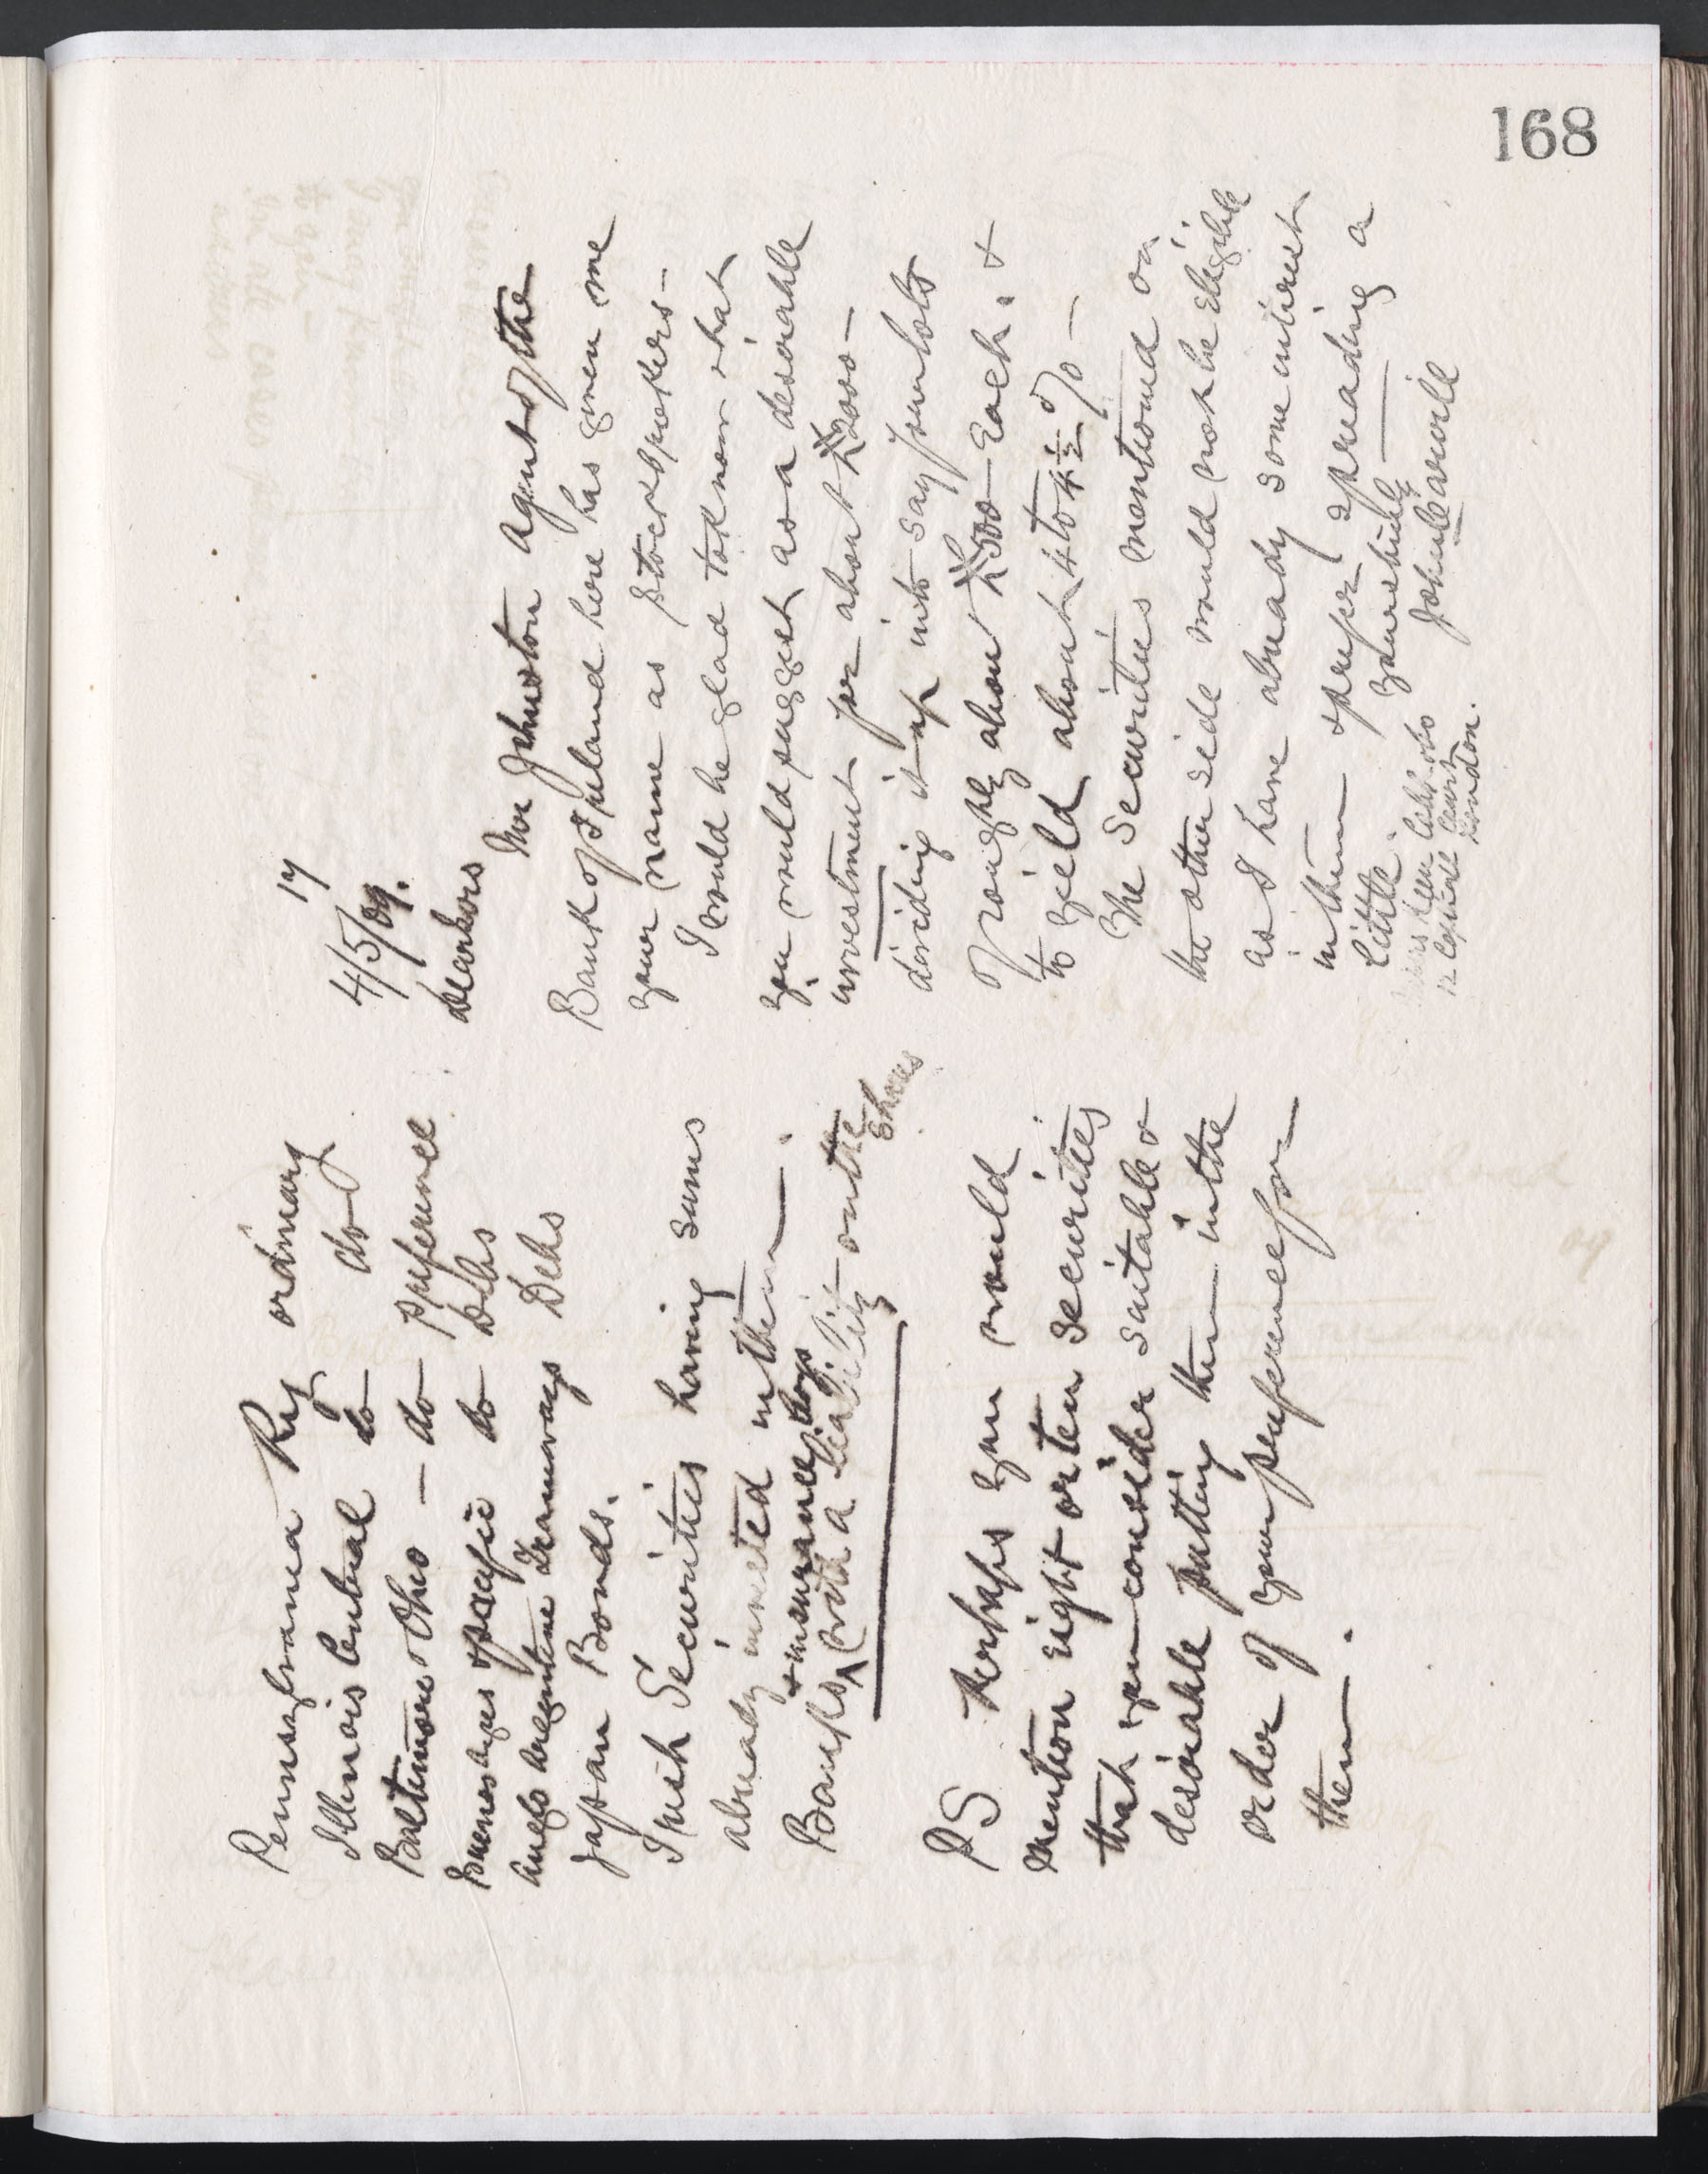 168
17
4/5/09.
Dear Sirs
Mr Johnston agent of the
Bank of Ireland here has given me
your name as Stockbrokers —
I would be glad to know what
you would suggest as a desirable
investment for about £2000 —
dividing it up into say four lots
of roughly about £500 — Each. &
to yield about 4 to 4½ % —
The Securities mentioned on
the other side would not be Eligible
as I have already some interest
in them & prefer spreading a
little.
yours truly
John Carvill
12 Copthall Court
London.
Pennsylvania Ry ordinary
Illinois Central do do
Baltimore Ohio — do preference
Buenos Ayres & Pacific do Debs
Anglo Argentine Tramways Debs
Japan Bonds.
Irish Securities having sums
already invested in them —.
Banks & insurance Coys with a liability on the shares
PS Perhaps you would
mention eight or ten Securities
that you consider suitable &
desirable putting them in the
order of your preference for
them.